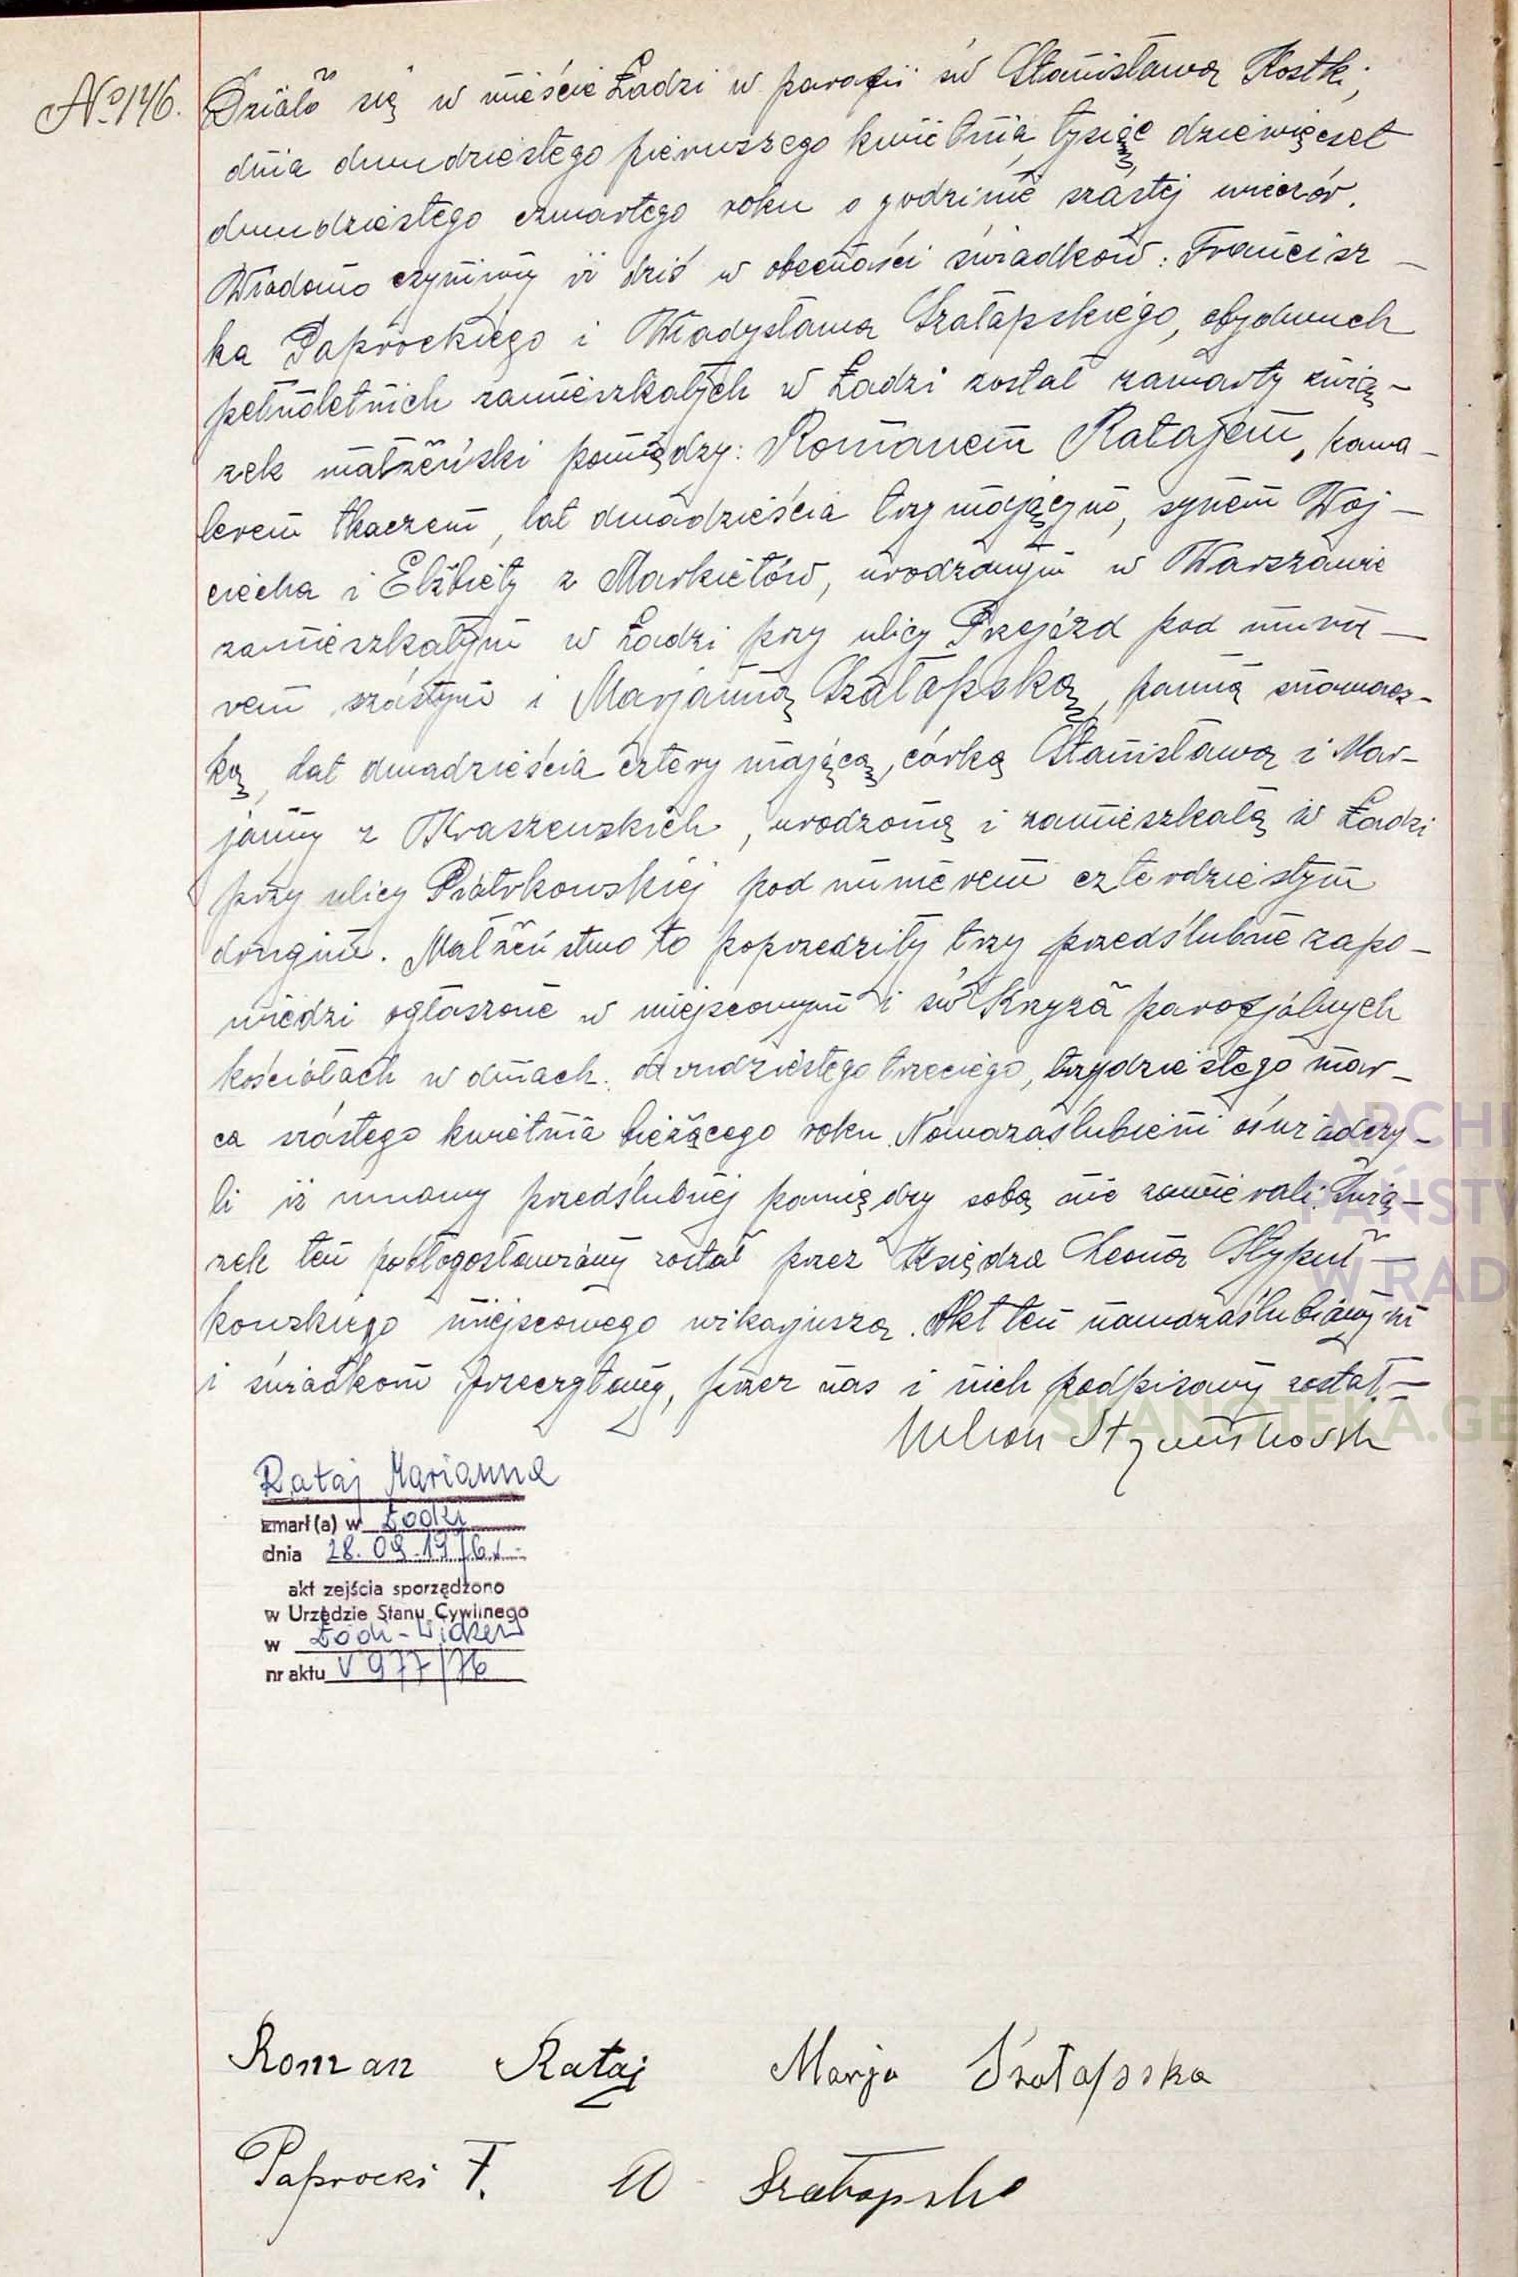 No 146.
Działo się w mieście Łodzi w parafii św Stanisława Kostki,
dnia dwudziestego pierwszego kwietnia tysiąc dziewięćset
dwudziestego czwartego roku o godzinie szóstej wieczór.
Wiadomo czynimy iż dziś w obecności świadków: Francisz-
ka Paprockiego i Władysława Szałapskiego, obydwuch
pełnoletnich zamieszkałych w Łodzi został zawarty zwią-
zek małżeński pomiędzy: Romanem Ratajem, kawa-
lerem tkaczem, lat dwadzieścia trzy mającym, synem Woj-
ciecha i Elżbiety z Markietów, urodzonym w Warszawie
zamieszkałym w Łodzi przy ulicy Przejazd pod nume-
rem szóstym i Marjanną Szałapską, panną snowacz-
ką, lat dwadzieścia cztery mającą, córką Stanisława i Mar-
janny z Kraszewskich, urodzoną i zamieszkałą w Łodzi
przy ulicy Piotrkowskiej pod numerem czterdziestym
drugim. Małżeństwo to poprzedziły trzy przedślubne zapo-
wiedzi ogłoszone w miejscowym i św Krzyża parafjalnych
kościołach w dniach: dwudziestego trzeciego, trzydziestego mar-
ca szóstego kwietnia bieżącego roku. Nowozaślubieni oświadczy-
li iż umowy przedślubnej pomiędzy sobą nie zawierali. Zwią-
zek ten pobłogosławiony został przez Księdza Leona Stypuł-
kowskiego miejscowego wikarjusza. Akt ten nowozaślubionym
i świadkom przeczytany, przez nas i nich podpisany został.-
Rataj Marianna
zmarł(a) w Łodzi
dnia 28.09.1976r.
akt zejścia sporządzono
w Urzędzie Stanu Cywilnego
w Łódź-Widzew
nr aktu V 977/76
ARCHI
PAŃSTW
W RAD
SKANOTEKA.GE
Roman Rataj Marja Szałapska
Paprocki F. W Szałapski